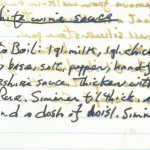 White wine sauce
to Boil: 1 qt. milk, 1 qt. chick
base, salt, pepper, hand f
shire sauce. Thicken with
Simmer til thick
and a dash of basil. Simm